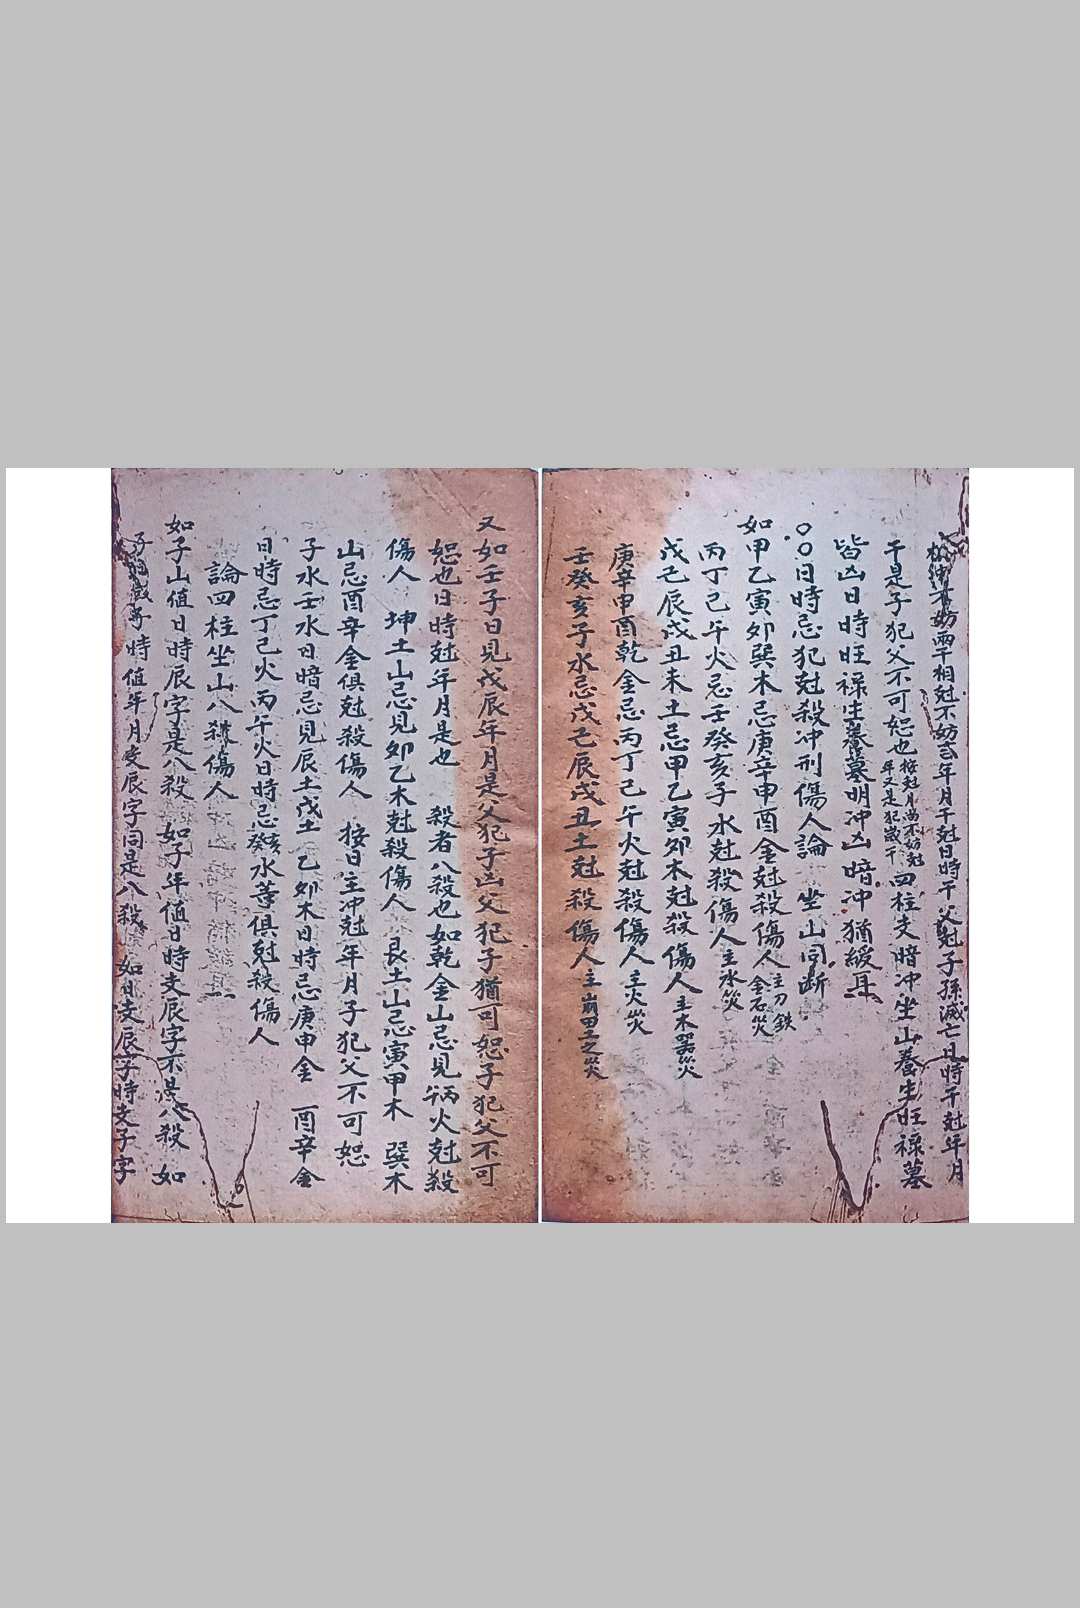 不妨兩干相尅不妨年月干尅日時干父尅子孫滅亡日時干尅年月
干是子犯父不可恕也按尅月尚不妨尅年又是犯歲干四柱支暗冲坐山養生旺祿墓
皆凶日時旺祿生養墓明冲凶暗冲猶緩耳
〇〇日時忌犯尅殺冲刑傷人論 坐山同断
如甲乙寅卯巽木忌庚辛申酉金尅殺傷人主刀鉄金石災
丙丁巳午火忌壬癸亥子水尅殺傷人主水災
戊己辰戌丑未土忌甲乙寅卯木尅殺傷人主木器災
庚辛申酉乾金忌丙丁巳午火尅殺傷人主火災
壬癸亥子水忌戊己辰戌丑土尅殺傷人主崩壓之災
又如壬子日見戊辰年月是父犯子凶父犯子猶可恕子犯父不可
恕也日時尅年月是也 殺者八殺也如乾金山忌見丙火尅殺
傷人 坤土山忌見卯乙木尅殺傷人 艮土山忌寅甲木 巽木
山忌酉辛金俱尅殺傷人 按日主冲尅年月子犯父不可恕
子水壬水日暗忌見辰土戊土 乙卯木日時忌庚申金 酉辛金
日時忌丁巳火丙午火日時忌癸亥水等俱尅殺傷人
論四柱坐山八殺傷人
如子山值日時辰字是八殺 如子年值日時支辰字不是八殺 如
時值年月支辰字同是八殺 如日支辰字時支子字